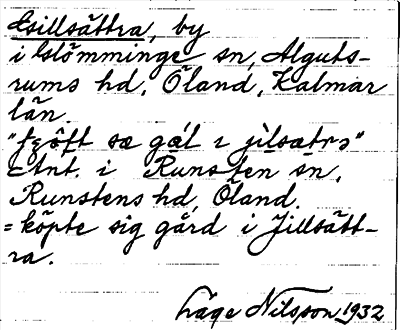 Gillsättra, by
i Glömminge sn, Alguts-
rums hd, Öland, Kalmar
län.
"tȝöft sæ gǻl ɪ jìlsætrɔ"
Ant. i Runsten sn,
Runstens hd, Öland.
= köpte sig gård i Jillsätt-
ra.
Låge Nilsson 1932